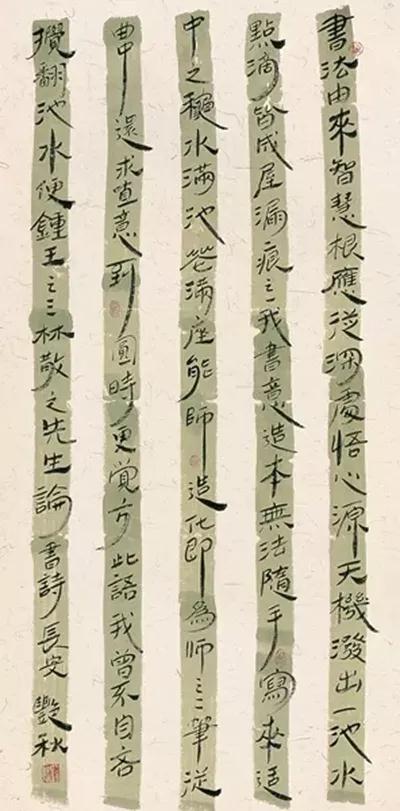 書法由來智慧根應從深處悟心源天機潑出一池水
點滴皆成屋漏痕之一我書意造本無法隨手寫來適
中之穐水滿池花滿座能師造化即為師之二筆從
曲中還求直意到圓時更覺方此語我曾不自吝
攪翻池水便鍾王之三林散之先生論書詩長安艷秋